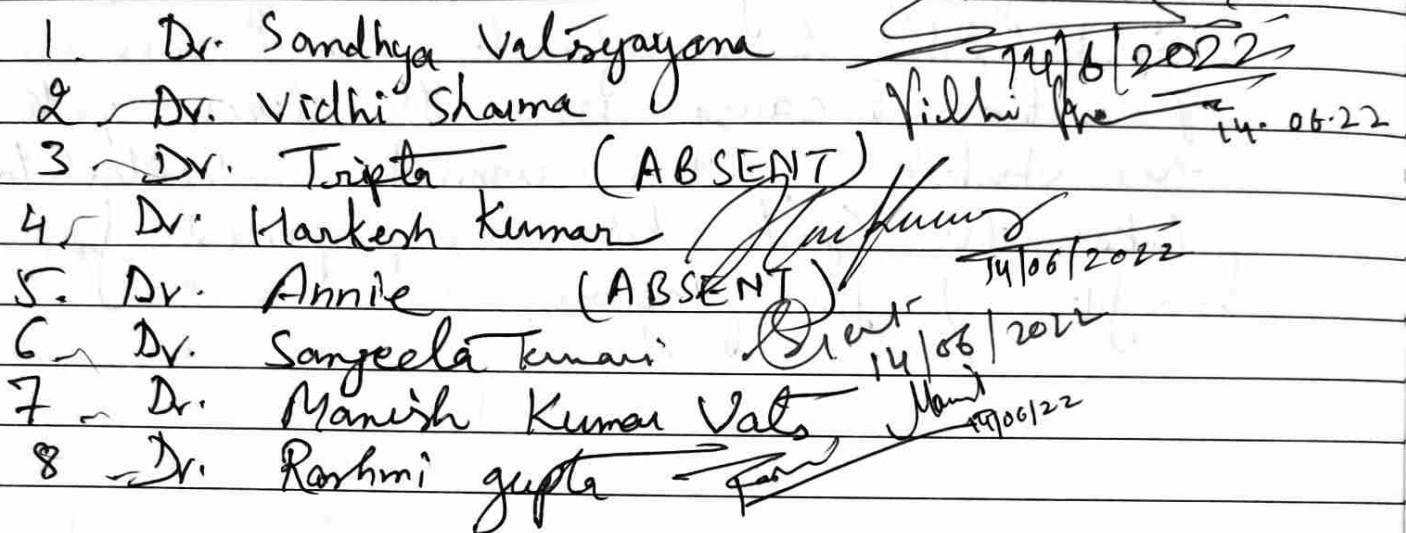 1. Dr. Sandhya Vatsyayana 14/6/2022
2. Dr. Vidhi Sharma Vidhi 14.06.22
3. Dr. Tripta (ABSENT)
4. Dr. Harkesh Kumar HarKumar 14/06/2022
5. Dr. Annie (ABSENT)
6. Dr. Sangeeta Kumari 14/06/2022
7. Dr. Manish Kumar Vats Manish 14/06/22
8. Dr. Rashmi gupta